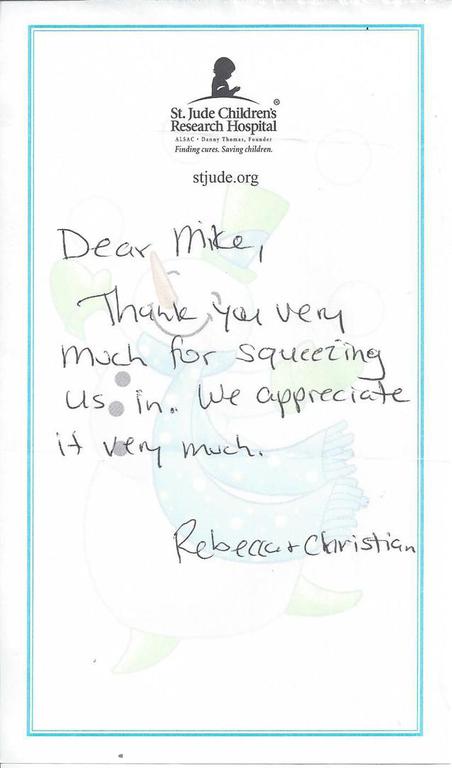 St. Jude Children's®
Research Hospital
ALSAC • Danny Thomas, Founder
Finding cures. Saving children.
stjude.org
Dear Mike,
Thank you very
much for squeezing
us in. We appreciate
it very much.
Rebecca + Christian